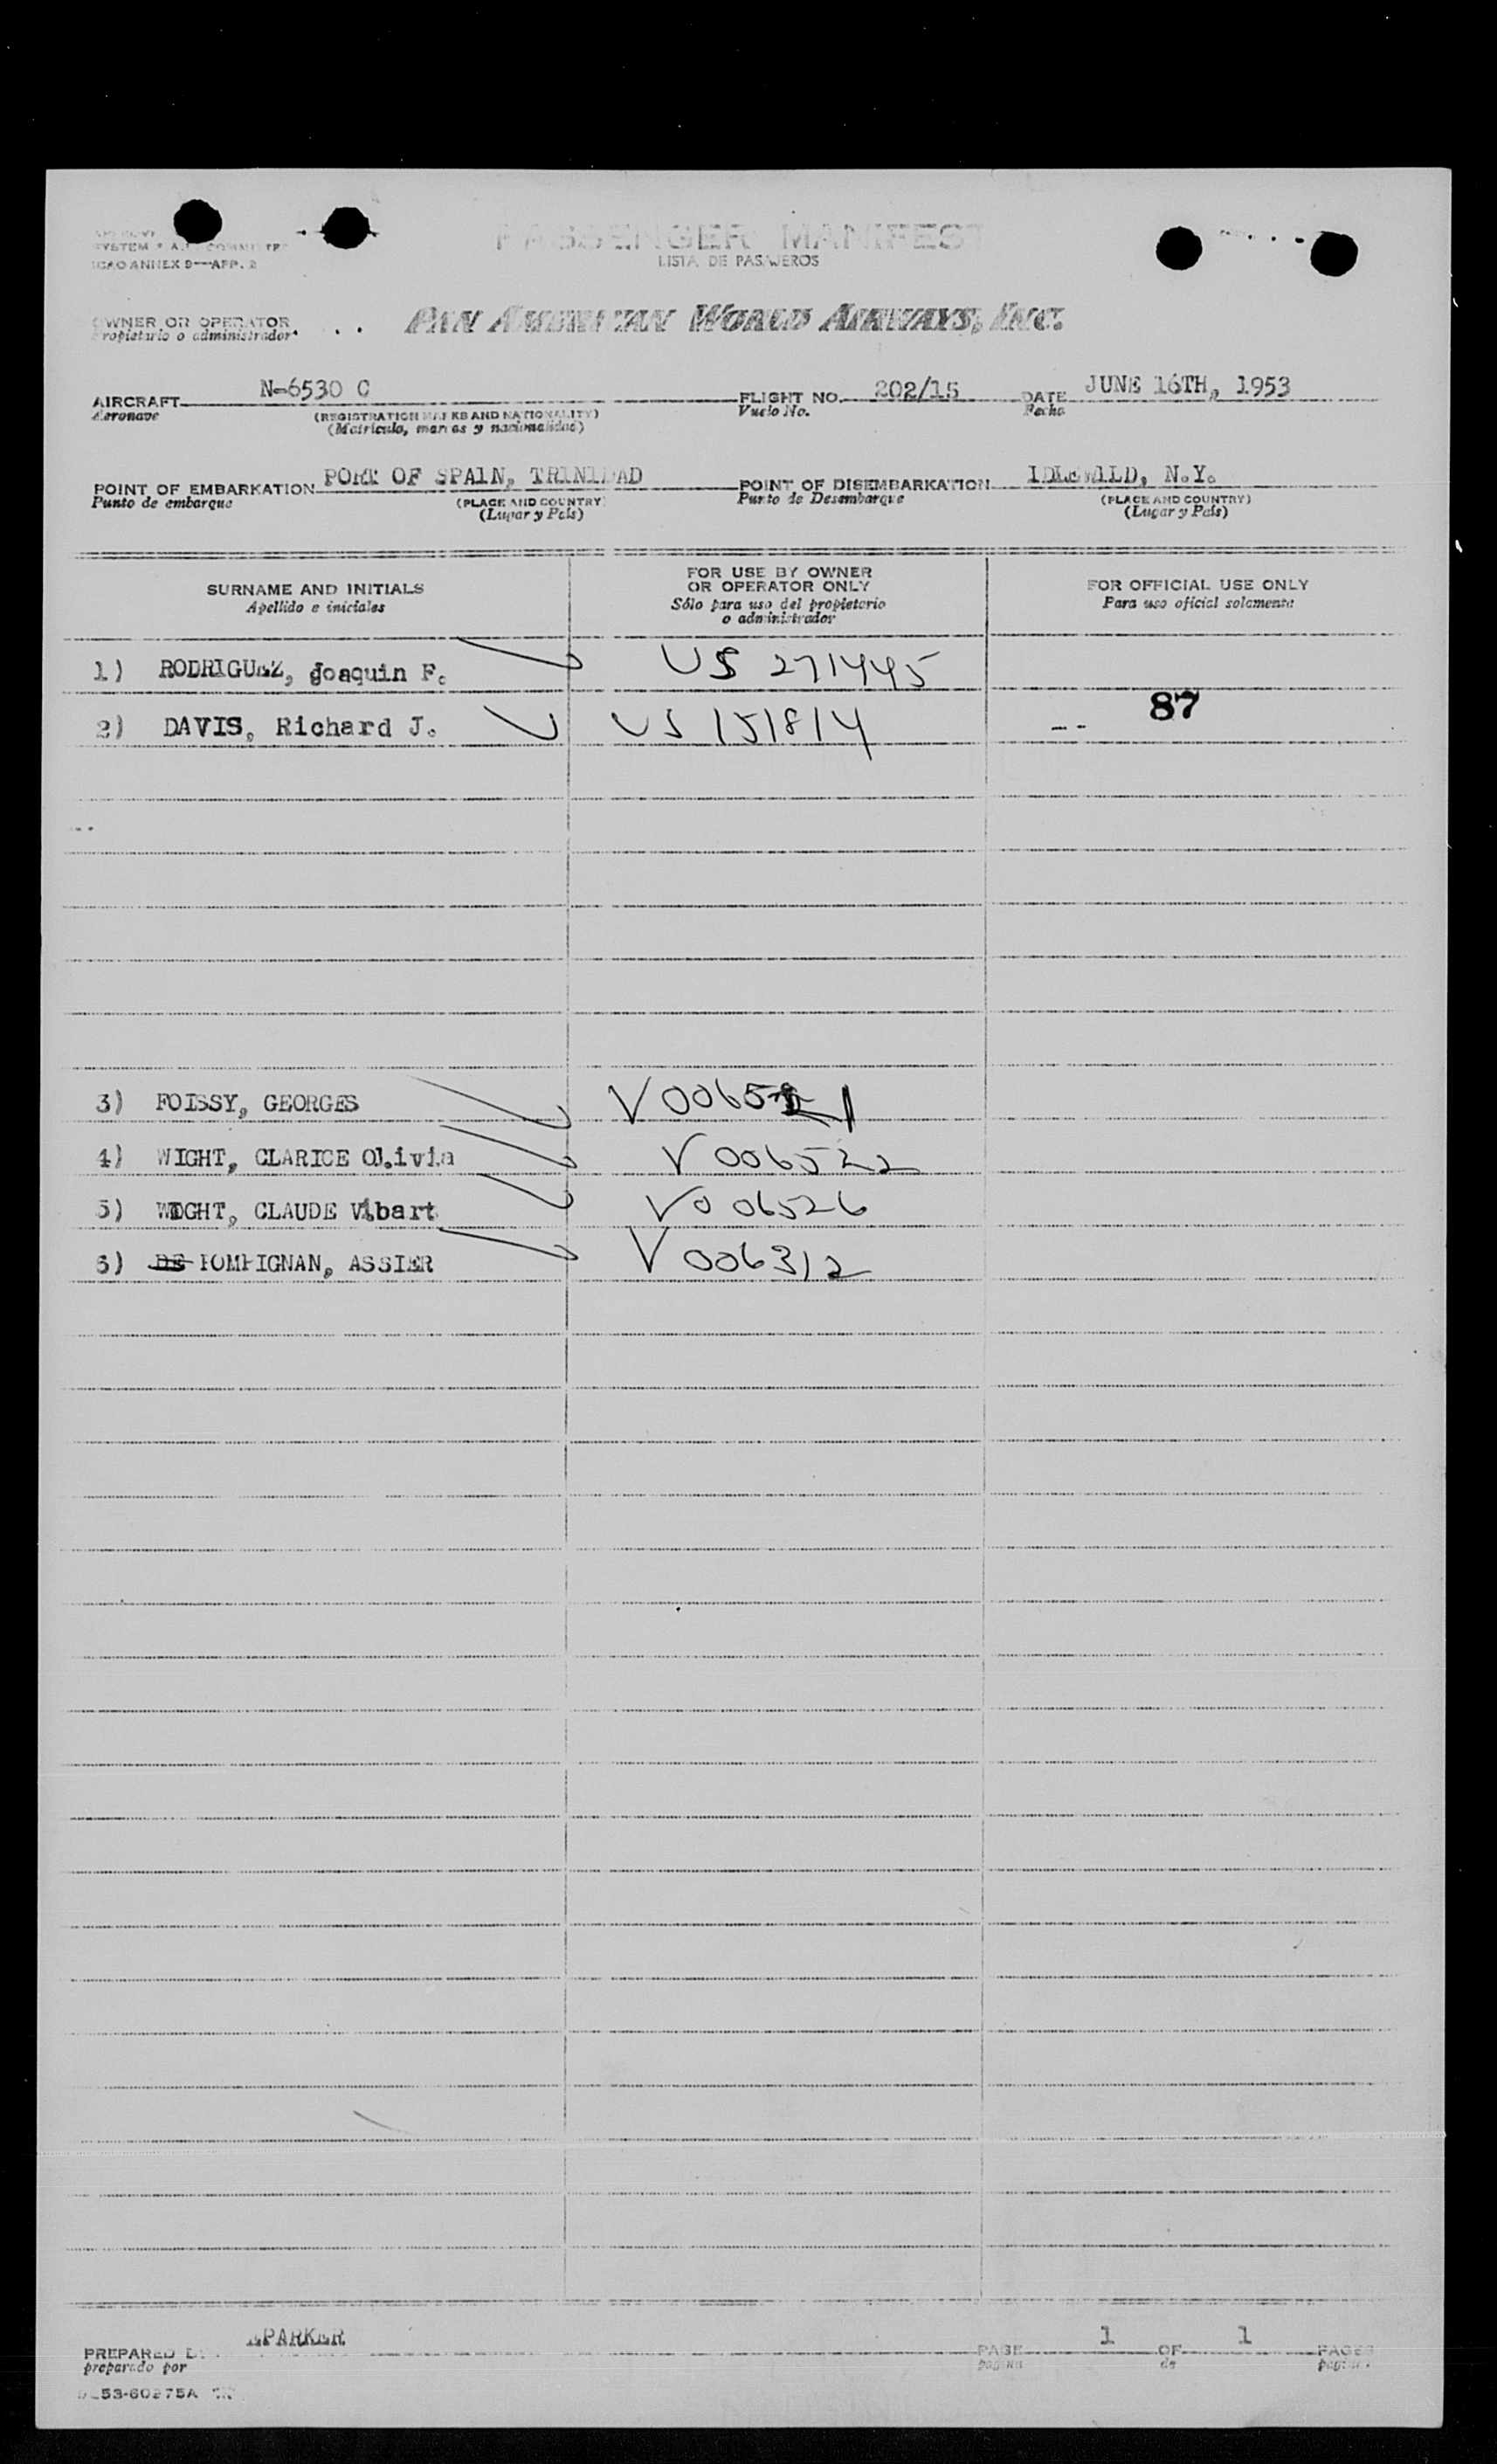 PASSENGER MANIFEST
LISTA DE PASAJEROS
ICAO ANNEX 9—APP. 2
OWNER OR OPERATOR
Propietario o administrador
PAN AMERICAN WORLD AIRWAYS, INC.
AIRCRAFT N-6530 C FLIGHT NO. 202/15 DATE JUNE 16TH, 1953
Aeronave (REGISTRATION MARKS AND NATIONALITY) Vuelo No. Fecha
(Matricula, marcas y nacionalidad)
POINT OF EMBARKATION PORT OF SPAIN, TRINIDAD POINT OF DISEMBARKATION IDLEWILD, N.Y.
Punto de embarque (PLACE AND COUNTRY) Punto de Desembarque (PLACE AND COUNTRY)
(Lugar y País) (Lugar y País)
SURNAME AND INITIALS
Apellido e iniciales
FOR USE BY OWNER
OR OPERATOR ONLY
Sólo para uso del propietario
o administrador
FOR OFFICIAL USE ONLY
Para uso oficial solamente
1) RODRIGUEZ, Joaquin F. US 271445
87
2) DAVIS, Richard J. US 151814
3) FOISSY, GEORGES V 006521
4) WIGHT, CLARICE Olivia V 006522
5) WIGHT, CLAUDE Vibart V 006526
6) DE POMPIGNAN, ASSIER V 006312
PREPARED BY EPARKER PAGE 1 OF 1 PAGES
preparado por pagina de paginas
53-60275A